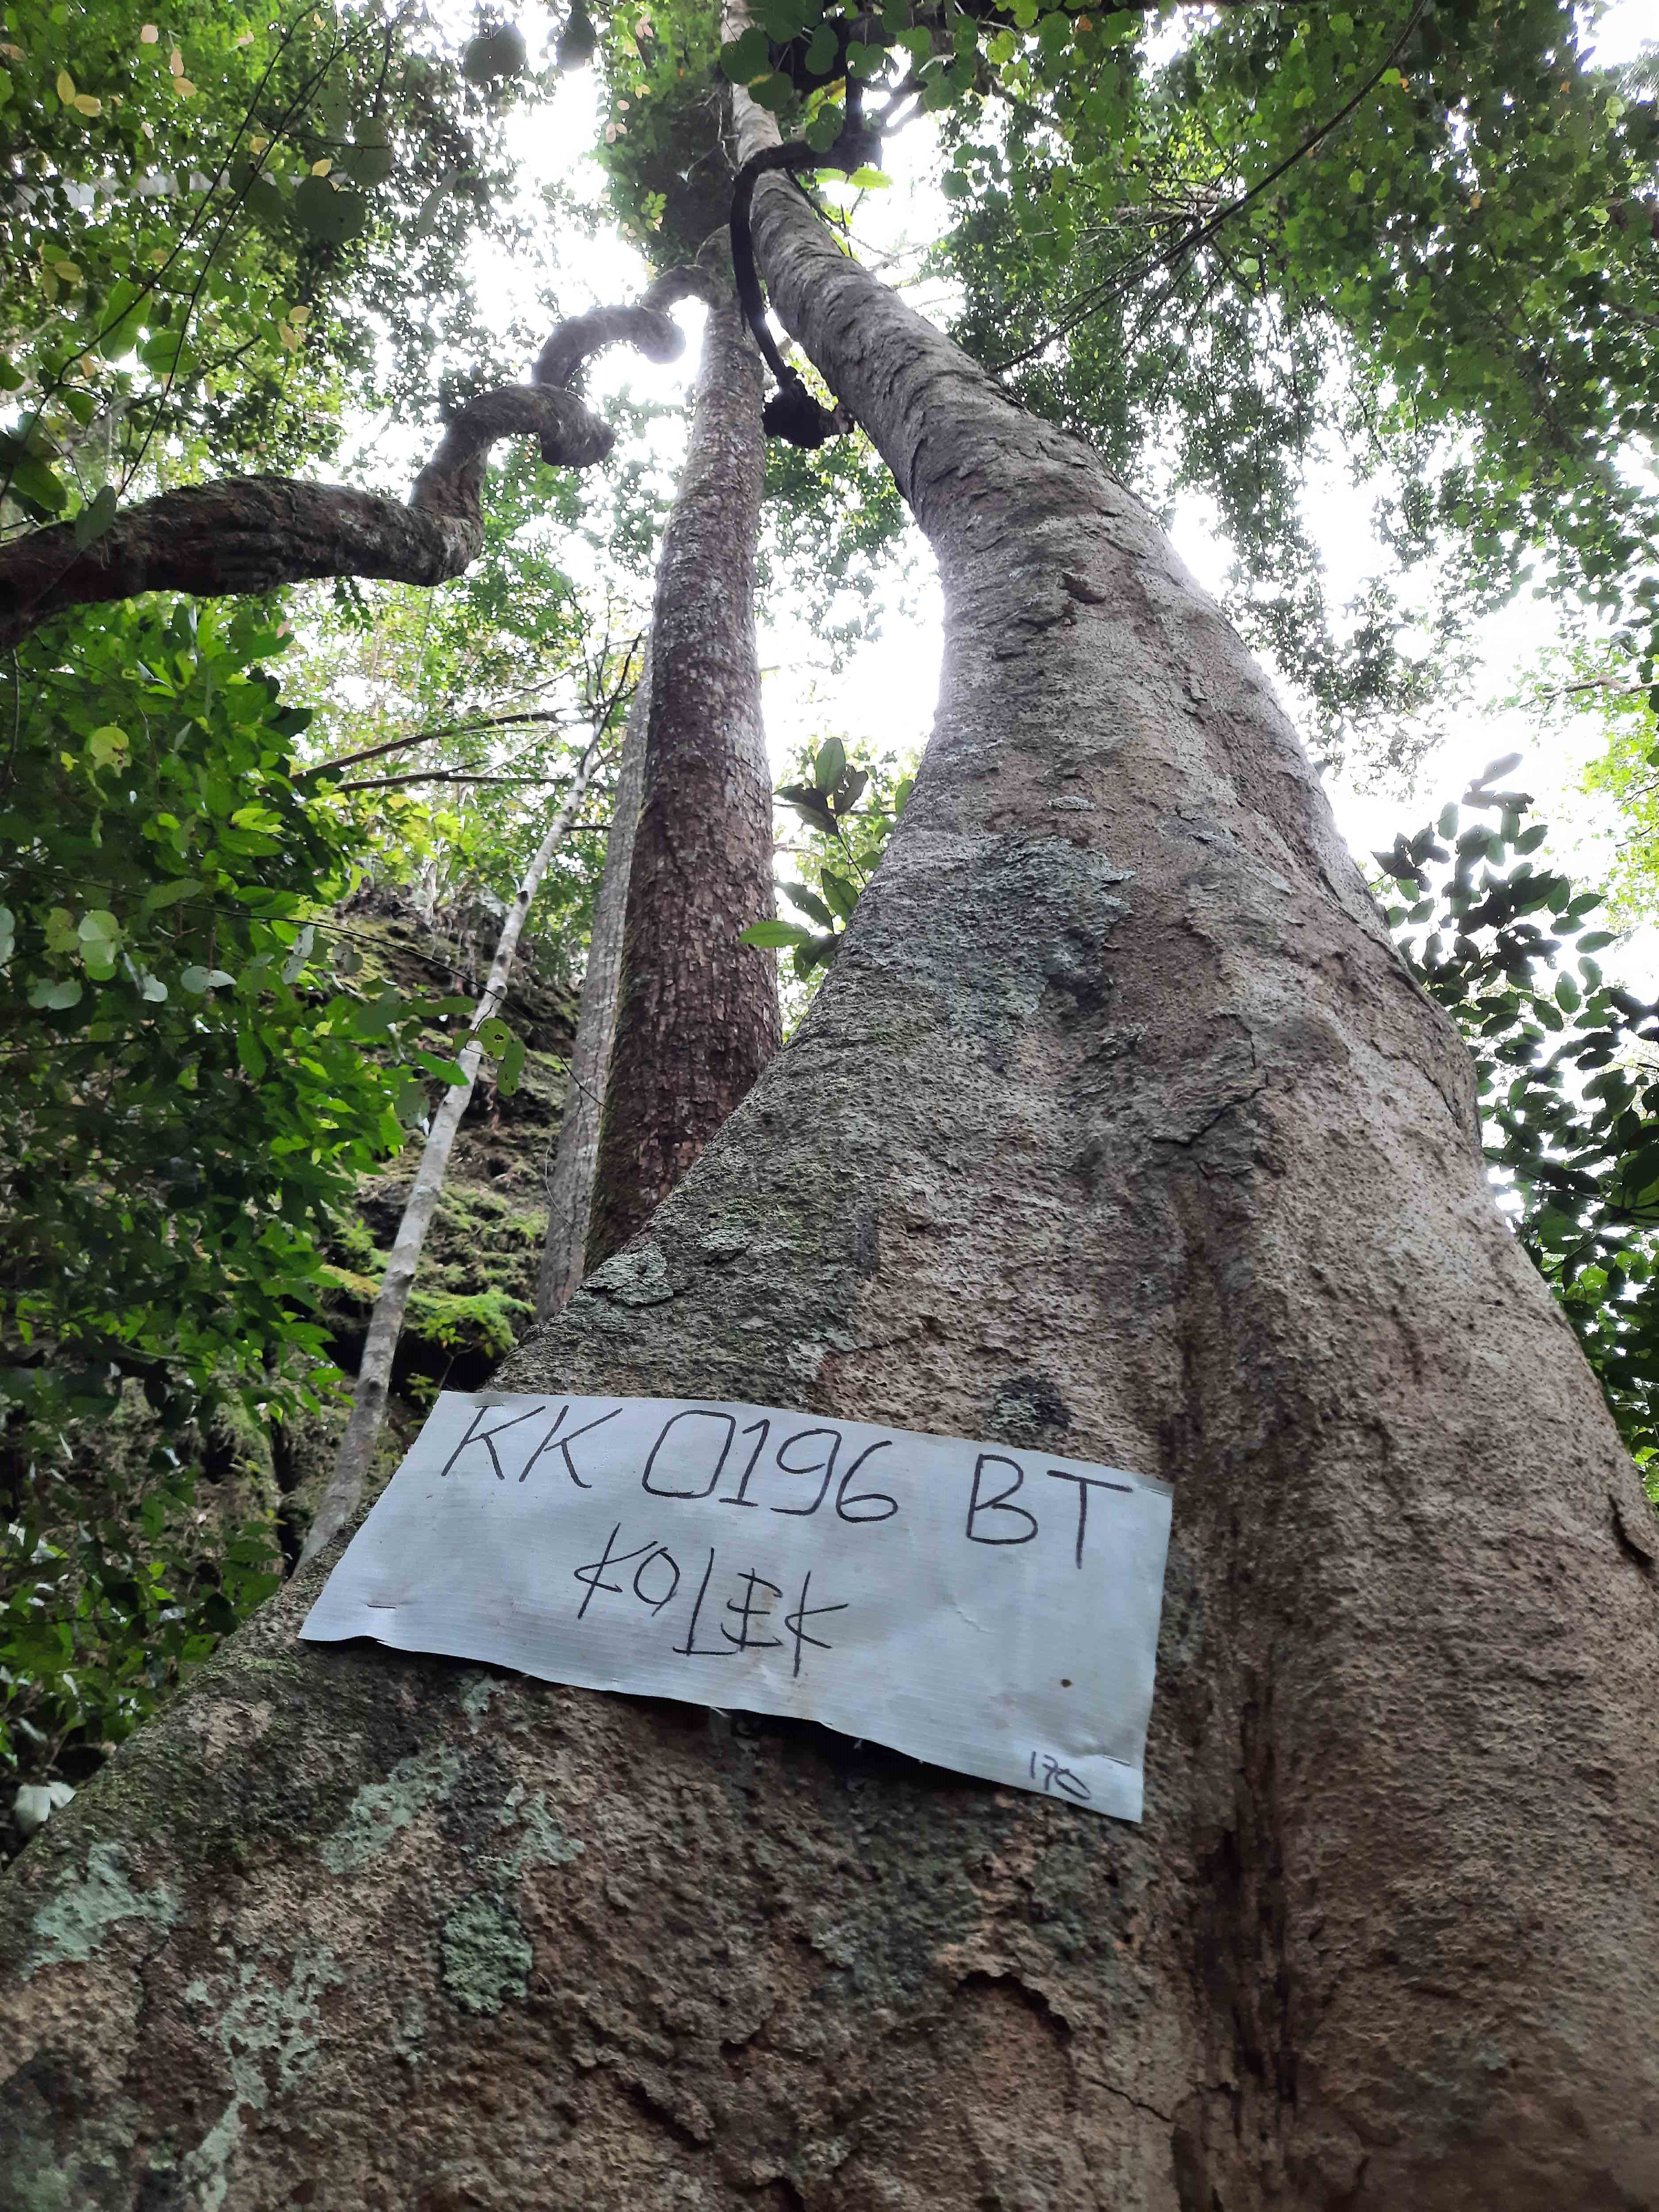 KK 0196 BT
KOLEK
170